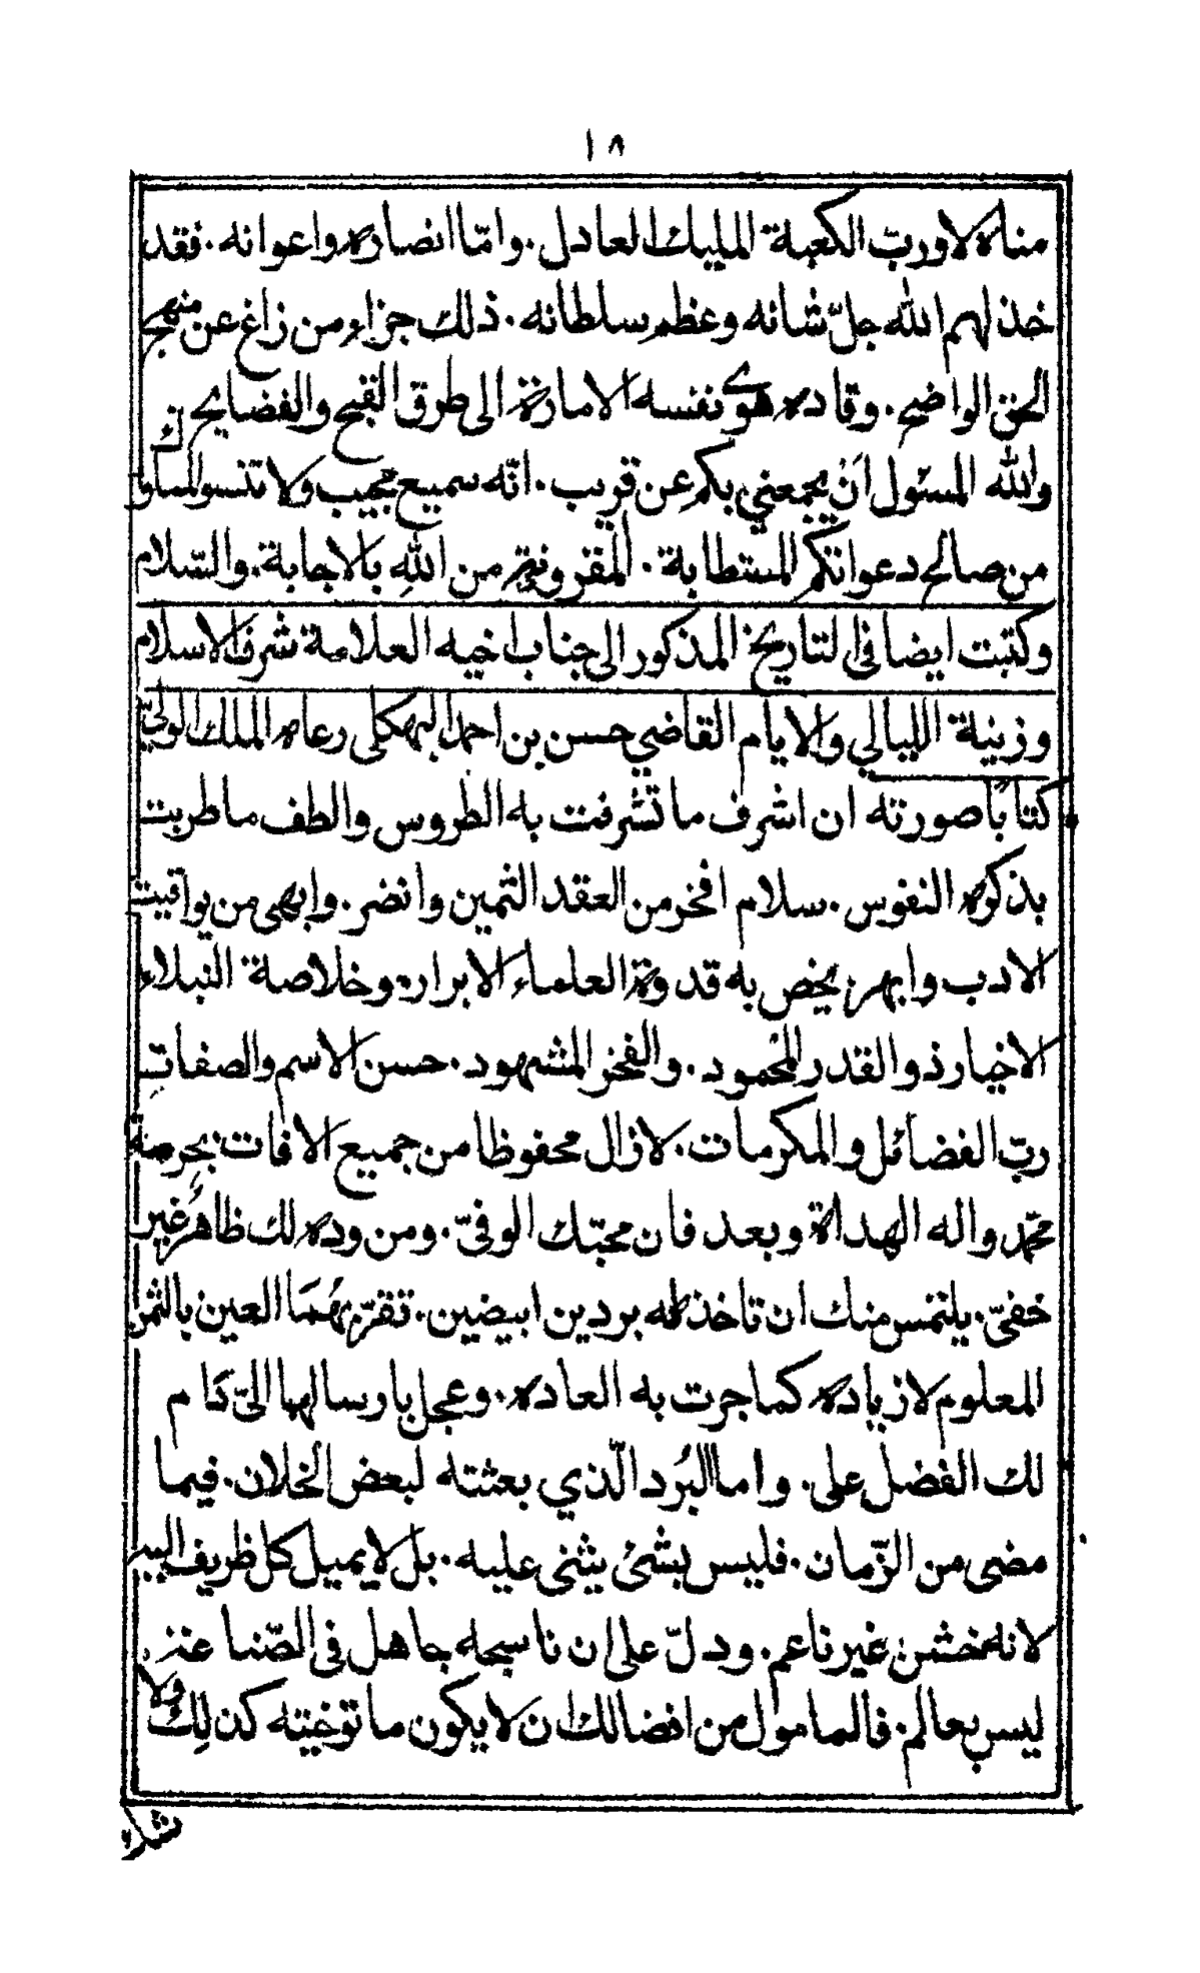 ١٨
مناه لا ورب الكعبة المليك العادل. وامّا انصاره واعوانه. فقد
خذلهم الله جلّ شانه وعظم سلطانه. ذلك جزاء من زاغ عن منهج
الحق الواضح. وقاده هوى نفسه الامارة الى طرق القبح والفضايح
والله المسئول اَنْ يجمعني بكم عن قريب. انّه سميع مجيب ولا تنسو المملوك
من صالح دعواتكم المستطابة. المقرونة من اللهِ بالاجابة. والسّلام
وكتبت ايضا في التاريخ المذكور الى جناب اخيه العلامة شرف الاسلام
وزينة الليالي والايام القاضي حسن بن احمد البهكلى رعاه الملك الولىّ
كتابًا صورته ان اشرف ما تشرفت به الطروس والطف ما طربت
بذكره النفوس. سلام افخر من العقد الثمين وانضر. وابهى من يواقيت
الادب وابهر. يخص به قدوة العلماء الابرار. وخلاصة النبلاء
الاخيار ذو القدر المحمود. والفخر المشهود. حسن الاسم والصفات
ربّ الفضائل والمكرمات. لازال محفوظا من جميع الافات بحرمة
محمّد واله الهداة وبعد فان محبّك الوفىّ. ومن وده لك ظاهرُ غير
خفىّ. يلتمس منك ان تاخذ له بردين ابيضين. تقرّ بهُمَا العين بالثمن
المعلوم لا زياده كما جرت به العاده. وعجل بارسالها الىّ دَام
لك الفضل على. واما البُرد الّذي بعثته لبعض الخلان. فيما
مضى من الزّمان. فليس بشئ يثنى عليه. بل لا يميل كل ظريف اليه
لانه خشن غير ناعم. ودلّ على ان ناسجه جاهل فى الصّناعة.
ليس بعالم. فالمامول من افضالك ان لا يكون ما توخيته كذلِك ولا